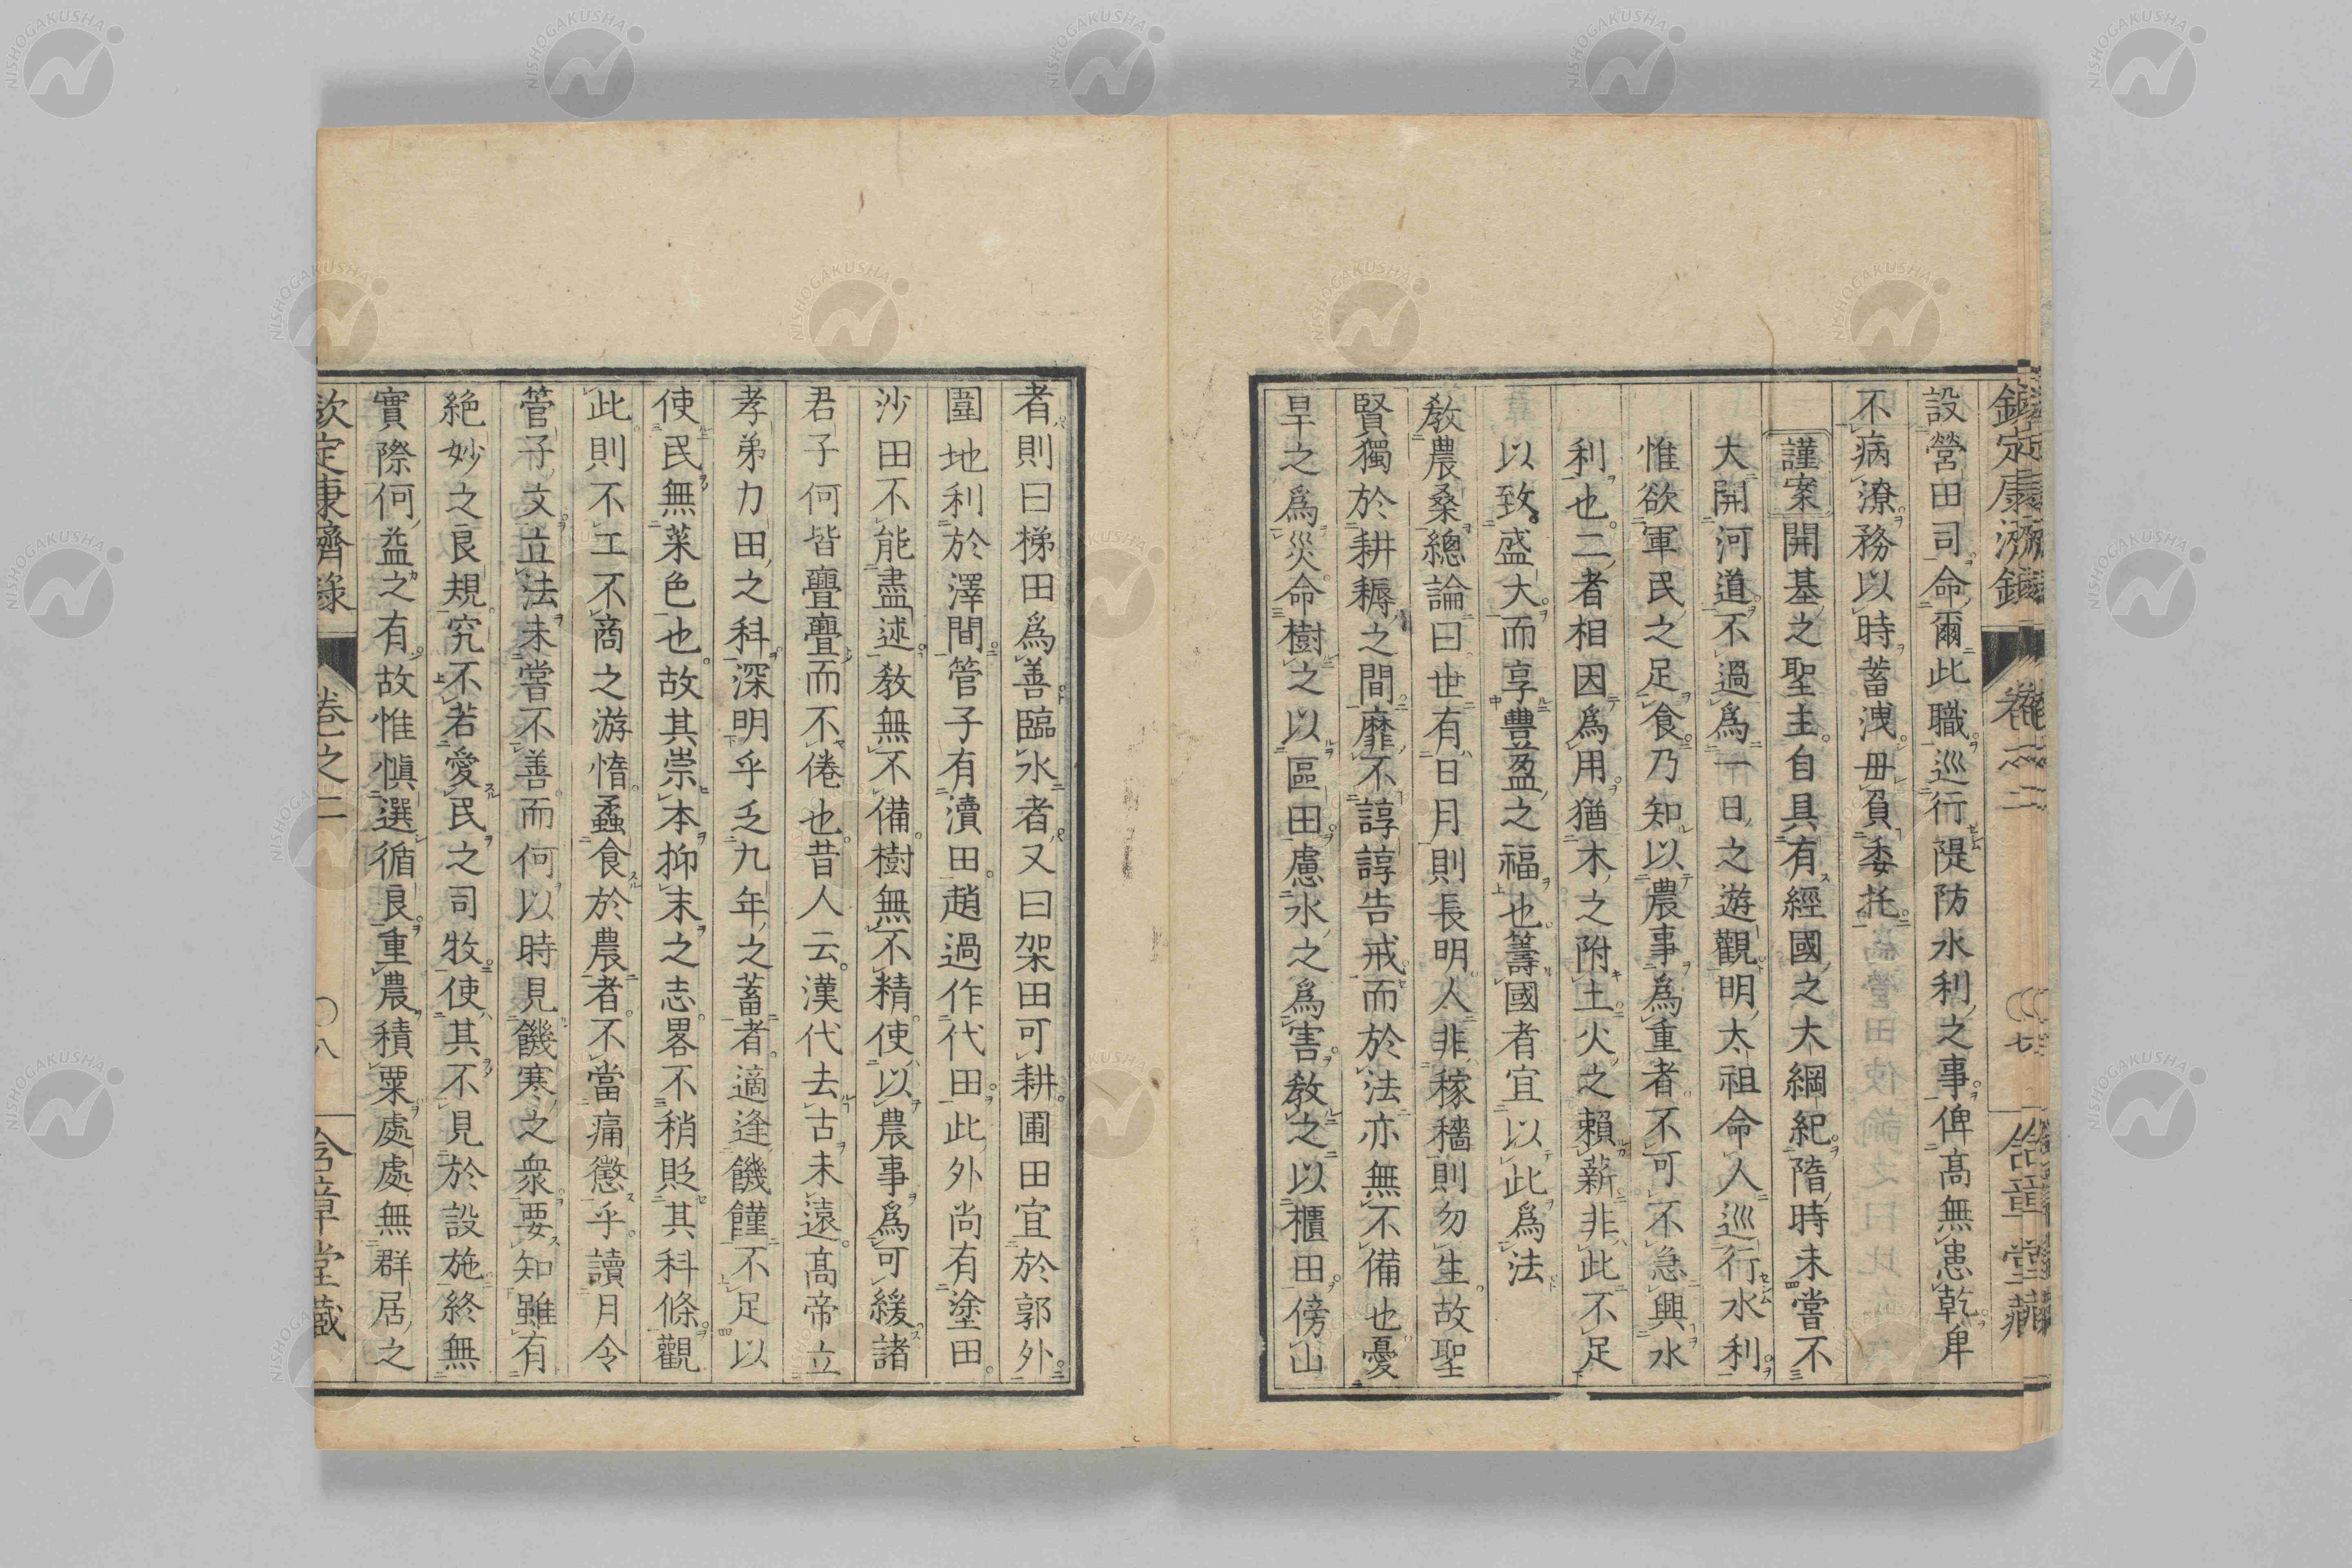 欽定康濟錄 卷之二 七 含章堂藏
設營田司命爾此職巡行隄防水利之事俾高無患乾卑
不病潦務以時蓄洩毋負委托
謹案開基之聖主自具有經國之大綱紀隋時未嘗不
大開河道不過爲一日之遊觀明太祖命人巡行水利
惟欲軍民之足食乃知以農事爲重者不可不急興水
利也二者相因爲用猶木之附土火之賴薪非此不足
以致盛大而享豊盈之福也籌國者宜以此爲法
敎農桑總論曰世有日月則長明人非稼穡則勿生故聖
賢獨於耕耨之間靡不諄諄告戒而於法亦無不備也憂
旱之爲災命樹之以區田慮水之爲害敎之以櫃田傍山
者則曰梯田爲善臨水者又曰架田可耕圃田宜於郭外
圍地利於澤間管子有瀆田趙過作代田此外尚有塗田
沙田不能盡述敎無不備樹無不精使以農事爲可緩諸
君子何皆亹亹而不倦也昔人云漢代去古未遠高帝立
孝弟力田之科深明乎乏九年之蓄者適逢饑饉不足以
使民無菜色也故其崇本抑末之志畧不稍貶其科條觀
此則不工不商之游惰蟊食於農者不當痛懲乎讀月令
管子文立法未嘗不善而何以時見饑寒之衆要知雖有
絶妙之良規究不若愛民之司牧使其不見於設施終無
實際何益之有故惟愼選循良重農積粟處處無群居之
欽定康濟錄 卷之二 八 含章堂藏